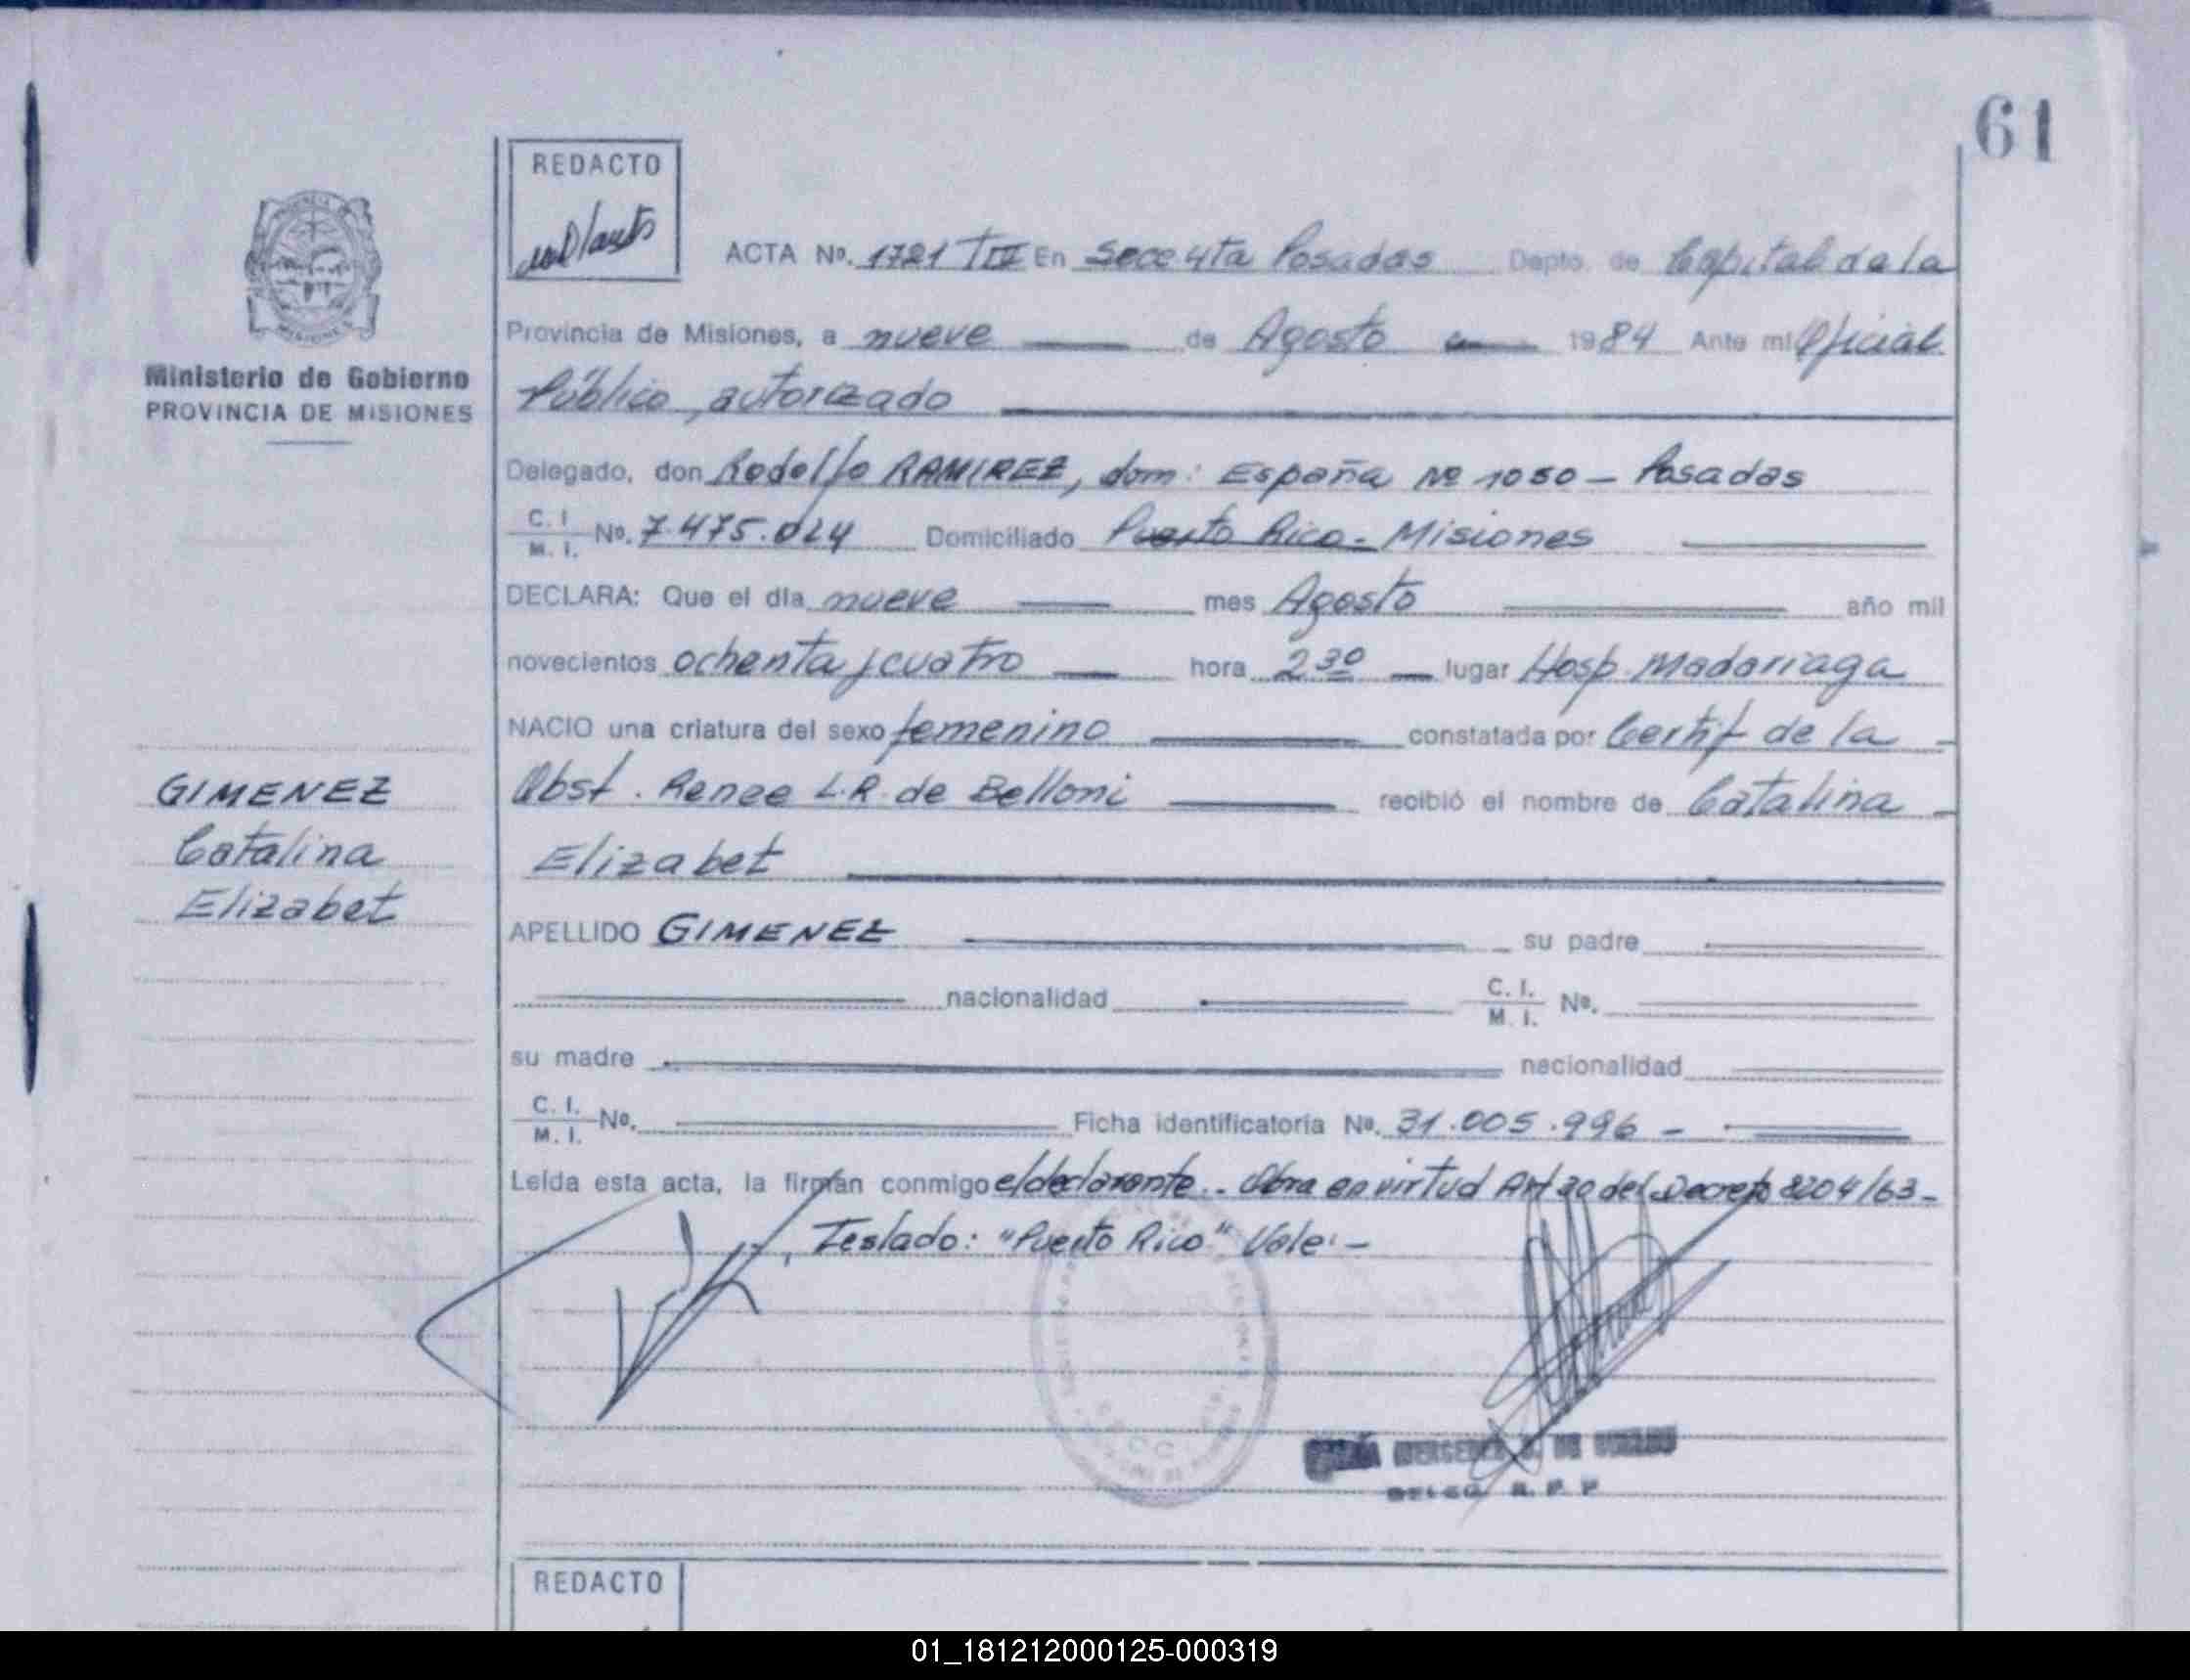 61
REDACTO
ACTA Nº. 1721 TIII En Secc 4ta Posadas Depto. de Capital de la
Provincia de Misiones, a nueve de Agosto 1984 Ante mi Oficial
Ministerio de Gobierno
PROVINCIA DE MISIONES
Público, autorizado
Delegado, don Rodolfo RAMIREZ, dom: España Nº 1050 - Posadas
C. I. M. I. Nº. 7.475.024 Domiciliado Puerto Rico - Misiones
DECLARA: Que el día nueve mes Agosto año mil
novecientos ochenta y cuatro hora 2 30 lugar Hosp. Madariaga
NACIO una criatura del sexo femenino constatada por Certif de la
GIMENEZ
Catalina
Elizabet
Obst. Renee L.R. de Belloni recibió el nombre de Catalina
Elizabet
APELLIDO GIMENEZ su padre
nacionalidad C. I. M. I. Nº.
su madre nacionalidad
C. I. M. I. Nº. Ficha identificatoria Nº. 31.005.996 -
Leída esta acta, la firman conmigo el declarante.. Obra en virtud Art 20 del Decreto 8204/63-
Testado: "Puerto Rico" Vale: -
DELEG. R. P. P
REDACTO
01_181212000125-000319